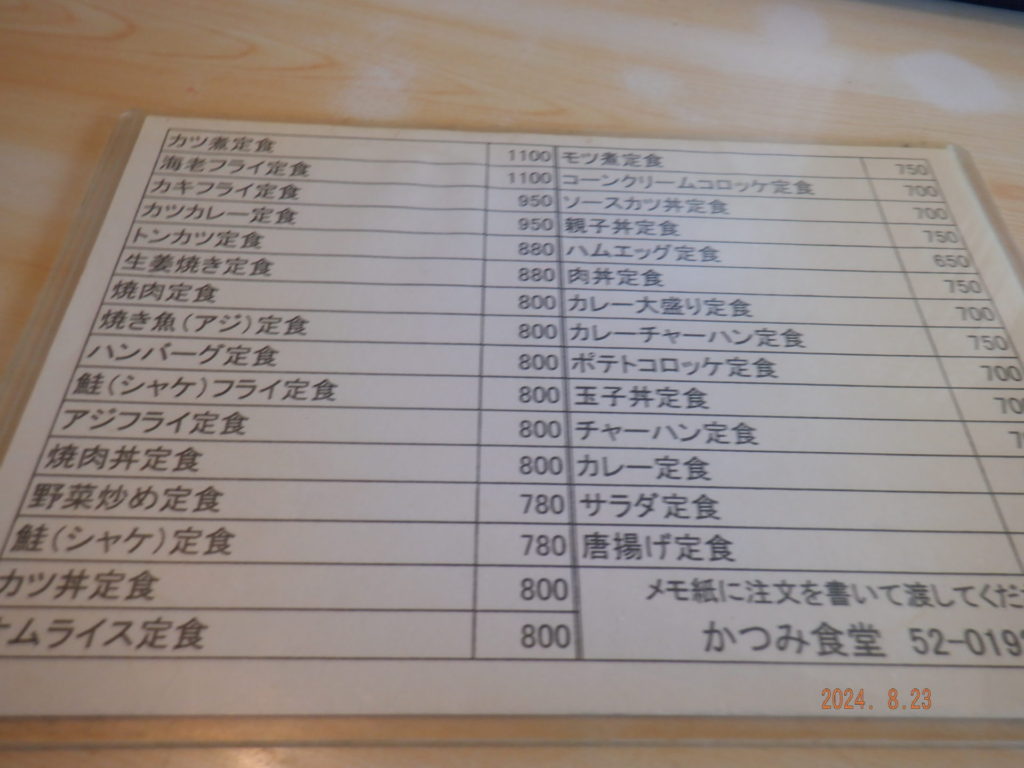 カツ煮定食 1100
海老フライ定食 1100
カキフライ定食 950
カツカレー定食 950
トンカツ定食 880
生姜焼き定食 880
焼肉定食 800
焼き魚(アジ)定食 800
ハンバーグ定食 800
鮭(シャケ)フライ定食 800
アジフライ定食 800
焼肉丼定食 800
野菜炒め定食 780
鮭(シャケ)定食 780
カツ丼定食 800
ムライス定食 800
モツ煮定食 750
コーンクリームコロッケ定食 700
ソースカツ丼定食 700
親子丼定食 750
ハムエッグ定食 650
肉丼定食 750
カレー大盛り定食 700
カレーチャーハン定食 750
ポテトコロッケ定食 700
玉子丼定食
チャーハン定食
カレー定食
サラダ定食
唐揚げ定食
メモ紙に注文を書いて渡してくだ
かつみ食堂 52-019
2024. 8.23